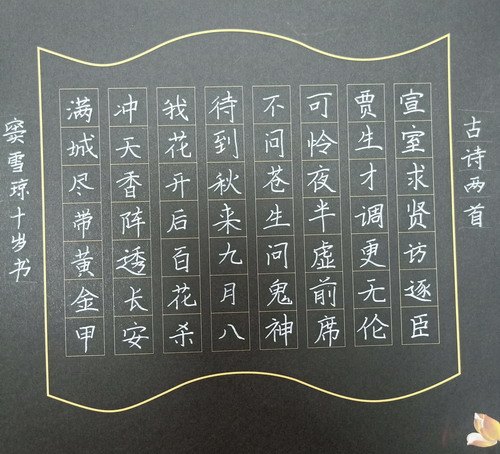 古诗两首
宣室求贤访逐臣
贾生才调更无伦
可怜夜半虚前席
不问苍生问鬼神
待到秋来九月八
我花开后百花杀
冲天香阵透长安
满城尽带黄金甲
窦雪琼十岁书